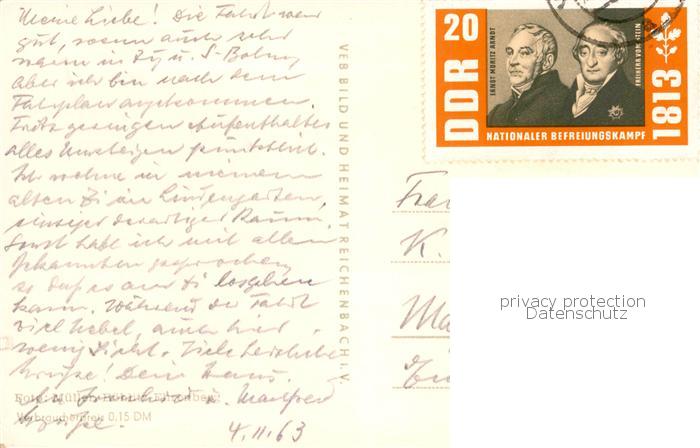 Meine Liebe! Die Fahrt war
gut, wenn auch sehr
in Zug u. S-Bahn
Aber ich bin nach dem
Fahrplan angekommen.
Trotz geringen Aufenthaltes
alles Umsteigen pünktlich.
Ich wohne in meinem
alten Zi im Lindengarten,
einziger derartiger Raum.
Sonst habe ich mit allen
Bekannten gesprochen,
so daß es am losgehen
kann. Während der Fahrt
viel Nebel, auch hier
wenig Sicht. Viele herzliche
Grüße! Dein Hans.
Foto: Müller
Verbraucherpreis 0,15 DM
4.11.63
VEB BILD UND HEIMAT REICHENBACH I. V.
20
DDR
ERNST MORITZ ARNDT
FREIHERR VOM STEIN
1813
NATIONALER BEFREIUNGSKAMPF
K.
privacy protection
Datenschutz